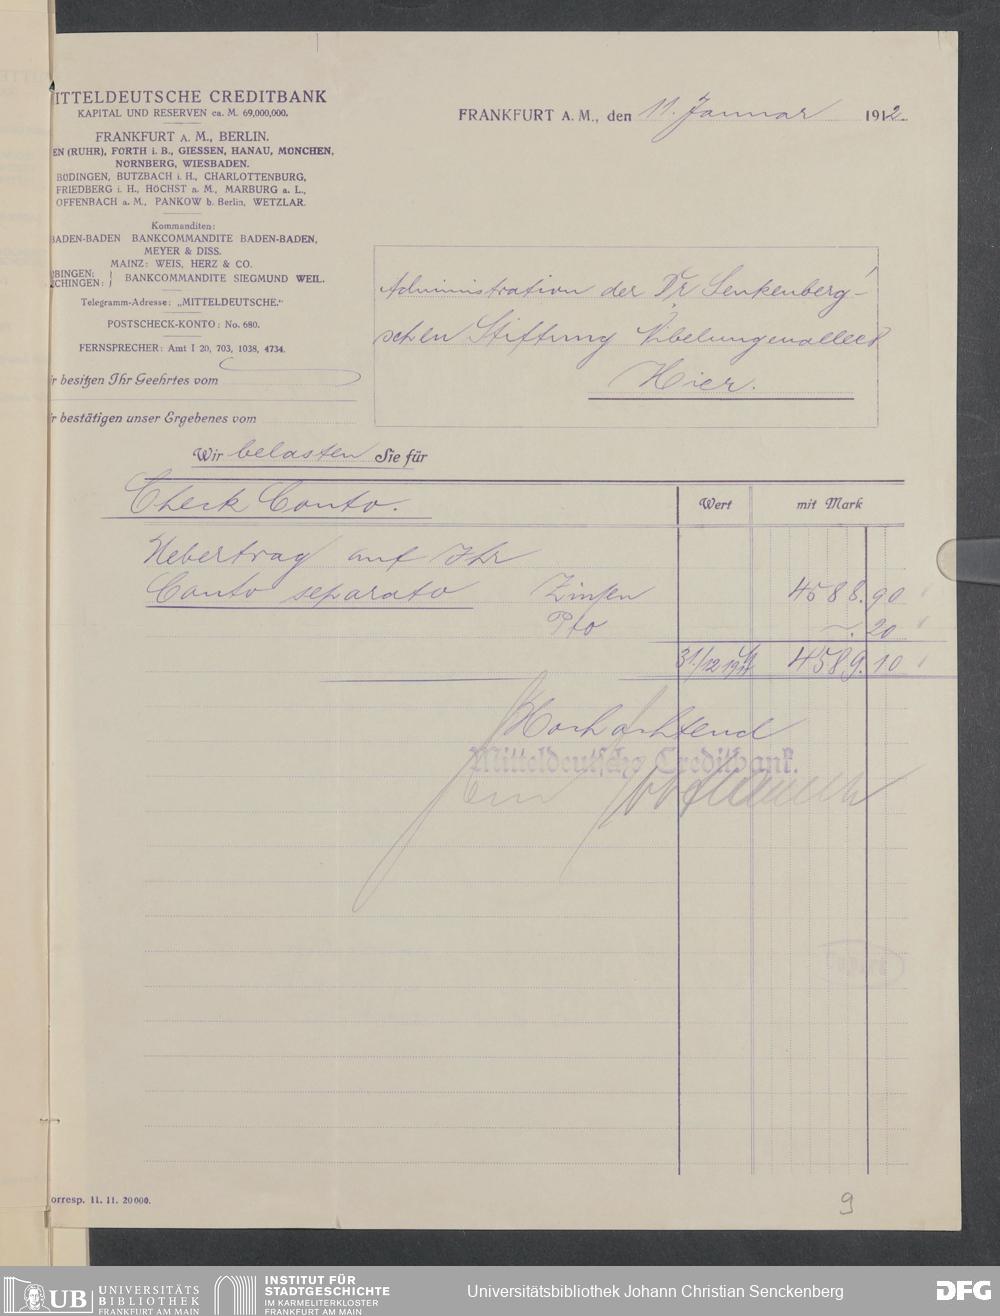 ITTELDEUTSCHE CREDITBANK
KAPITAL UND RESERVEN ca. M. 69,000,000.
FRANKFURT A. M., BERLIN.
EN (RUHR), FÜRTH i. B., GIESSEN, HANAU, MÜNCHEN,
NÜRNBERG, WIESBADEN.
BÜDINGEN, BUTZBACH i. H., CHARLOTTENBURG,
FRIEDBERG i. H., HÖCHST a. M., MARBURG a. L.,
OFFENBACH a. M., PANKOW b. Berlin, WETZLAR.
Kommanditen:
BADEN-BADEN BANKCOMMANDITE BADEN-BADEN,
MEYER & DISS.
MAINZ: WEIS, HERZ & CO.
BINGEN:
CHINGEN: BANKCOMMANDITE SIEGMUND WEIL.
Telegramm-Adresse: „MITTELDEUTSCHE."
POSTSCHECK-KONTO: No. 680.
FERNSPRECHER: Amt I 20, 703, 1038, 4734.
r besitzen Ihr Geehrtes vom
r bestätigen unser Ergebenes vom
FRANKFURT A. M., den 11. Januar 1912.
Administration der Dr. Senkenberg'-
schen Stiftung Nibelungenallee
Hier.
Wir belasten Sie für
Check Conto.
Wert mit Mark
Uebertrag auf Ihr
Conto separato Zinsen 4588.90
Pto —.20
31./12 1911 4589.10
Hochachtend
Mitteldeutsche Creditbank.
orresp. 11. 11. 20000.
9
UB UNIVERSITÄTS
BIBLIOTHEK
FRANKFURT AM MAIN
INSTITUT FÜR
STADTGESCHICHTE
IM KARMELITERKLOSTER
FRANKFURT AM MAIN
Universitätsbibliothek Johann Christian Senckenberg
DFG